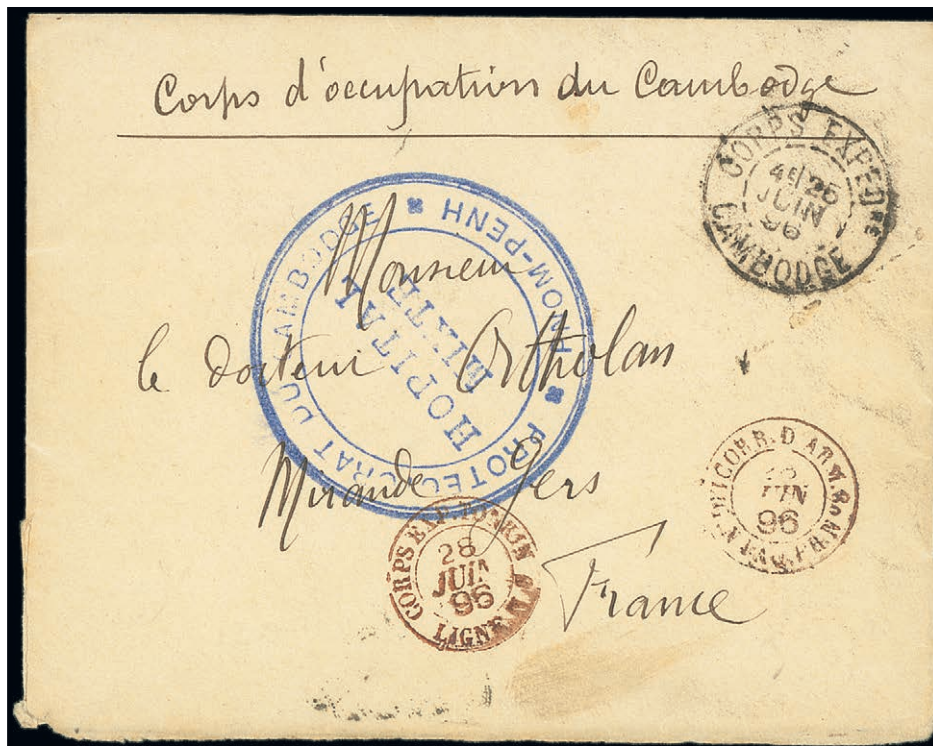 Corps d'occupation du Cambodge
CORPS EXPEDRE
4E/25
JUIN
96
CAMBODGE
PROTECTORAT DU CAMBODGE
PHNOM-PENH
HOPITAL
MIXTE
Monsieur
le docteur Ortholan
Mirande Gers
France
CORPS EXP. TONKIN
28
JUIN
96
LIGNE N
CORR. D'ARM.
JUIN
96